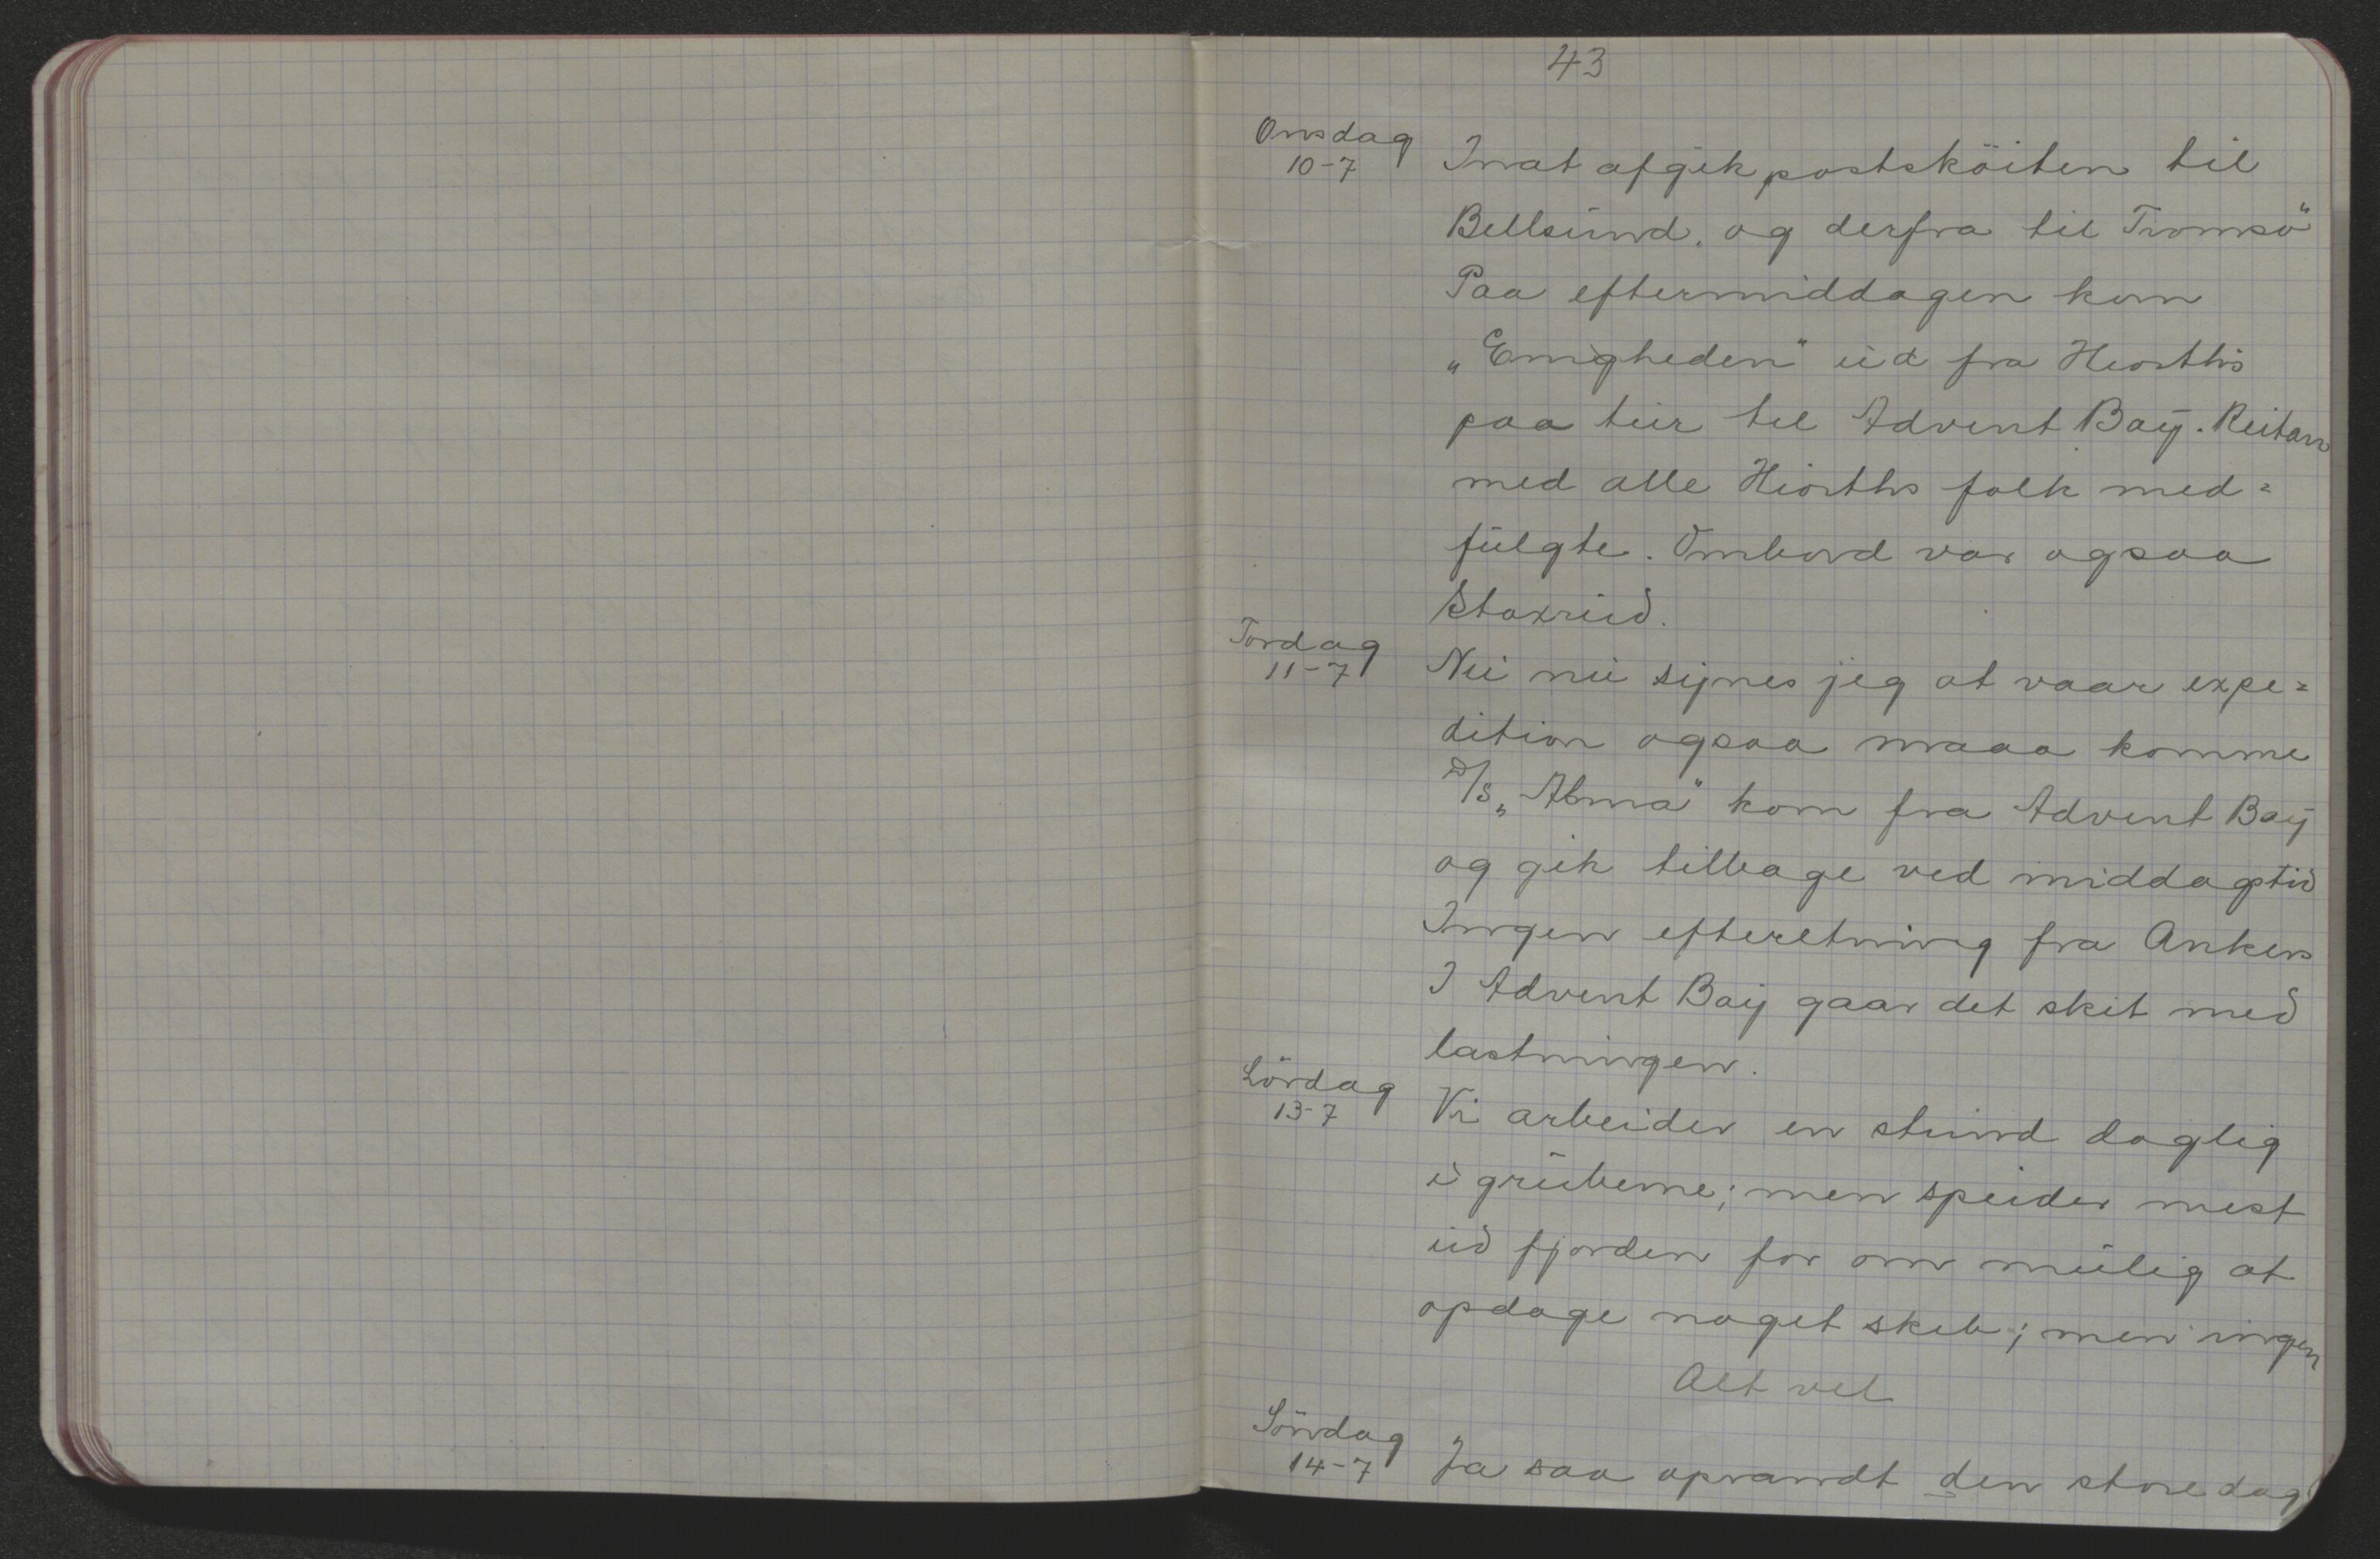 43
Onsdag
10-7
Inat afgik postsköiten til
Bellsund. og derfra til Tromsö
Paa eftermiddagen kom
„Enigheden" ud fra Hiorths
paa tur til Advent Bay. Reitan
med alle Hiorths folk med=
fulgte. Ombord var ogsaa
Staxrud.
Torsdag
11-7
Nu nu synes jeg at vaar expe=
dition ogsaa maaa komme
D/S „Alma" kom fra Advent Bay
og gik tilbage ved middagstid
Ingen efteretning fra Ankers
I Advent Bay gaar det skit med
lastningen.
Lördag
13-7
Vi arbeider en stund daglig
i gruberne; men speider mest
ud fjorden for om mulig at
opdage noget skib; men ingen
Alt vel
Söndag
14-7
Ja saa oprandt den store dag